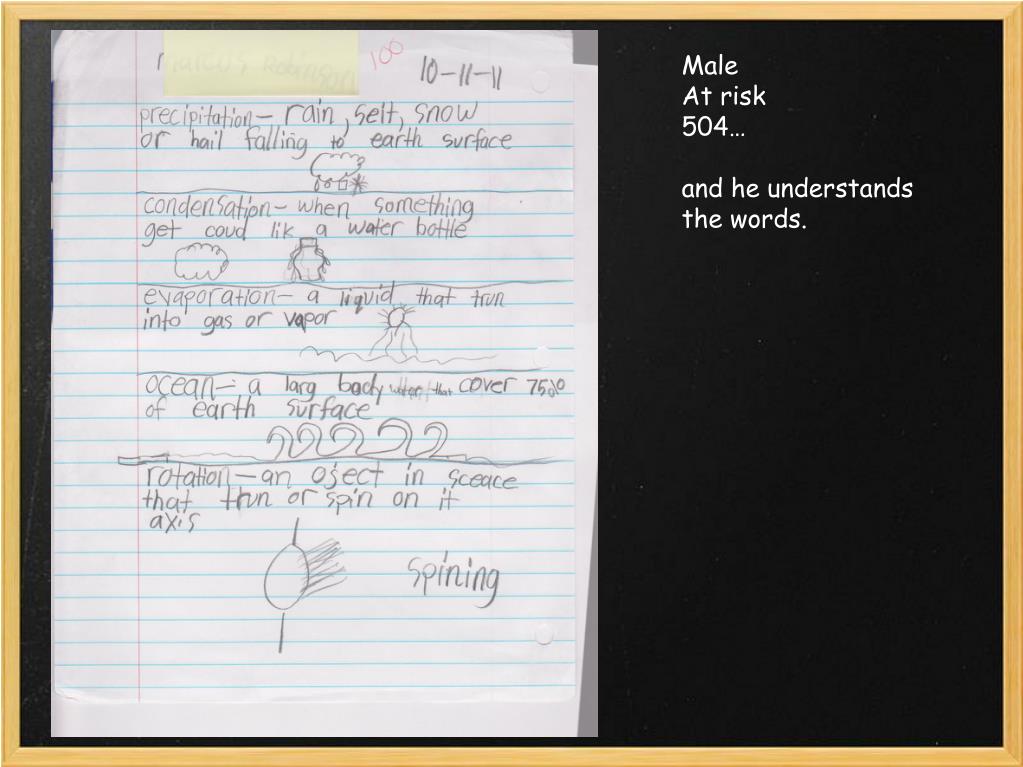 100
10-11-11
precipitation- rain, selt, snow
or hail falling to earth surface
condensation- when something
get coud lik a water bottle
evaporation- a liquid that trun
into gas or vapor
ocean- a larg body water that cover 75%
of earth surface
rotation- an oject in sceace
that trun or spin on it
axis
spining
Male
At risk
504…
and he understands
the words.